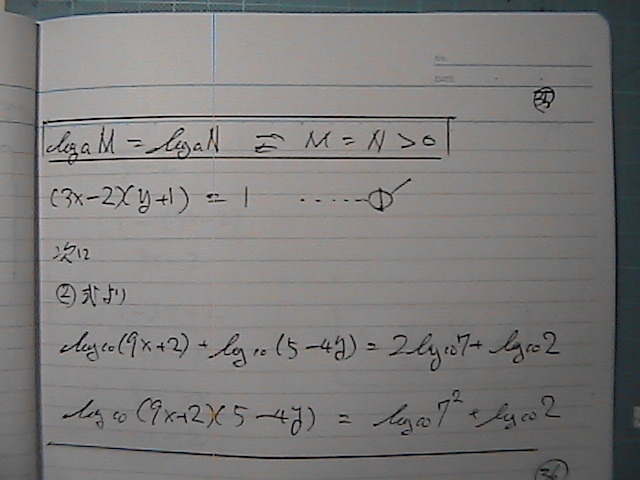 NO.
DATE
log a M = log a N ⇄ M = N > 0
(3x-2)(y+1) = 1 ......①
次に
②式より
log10(9x+2) + log10(5-4y) = 2log10 7 + log10 2
log10(9x+2)(5-4y) = log10 7² + log10 2